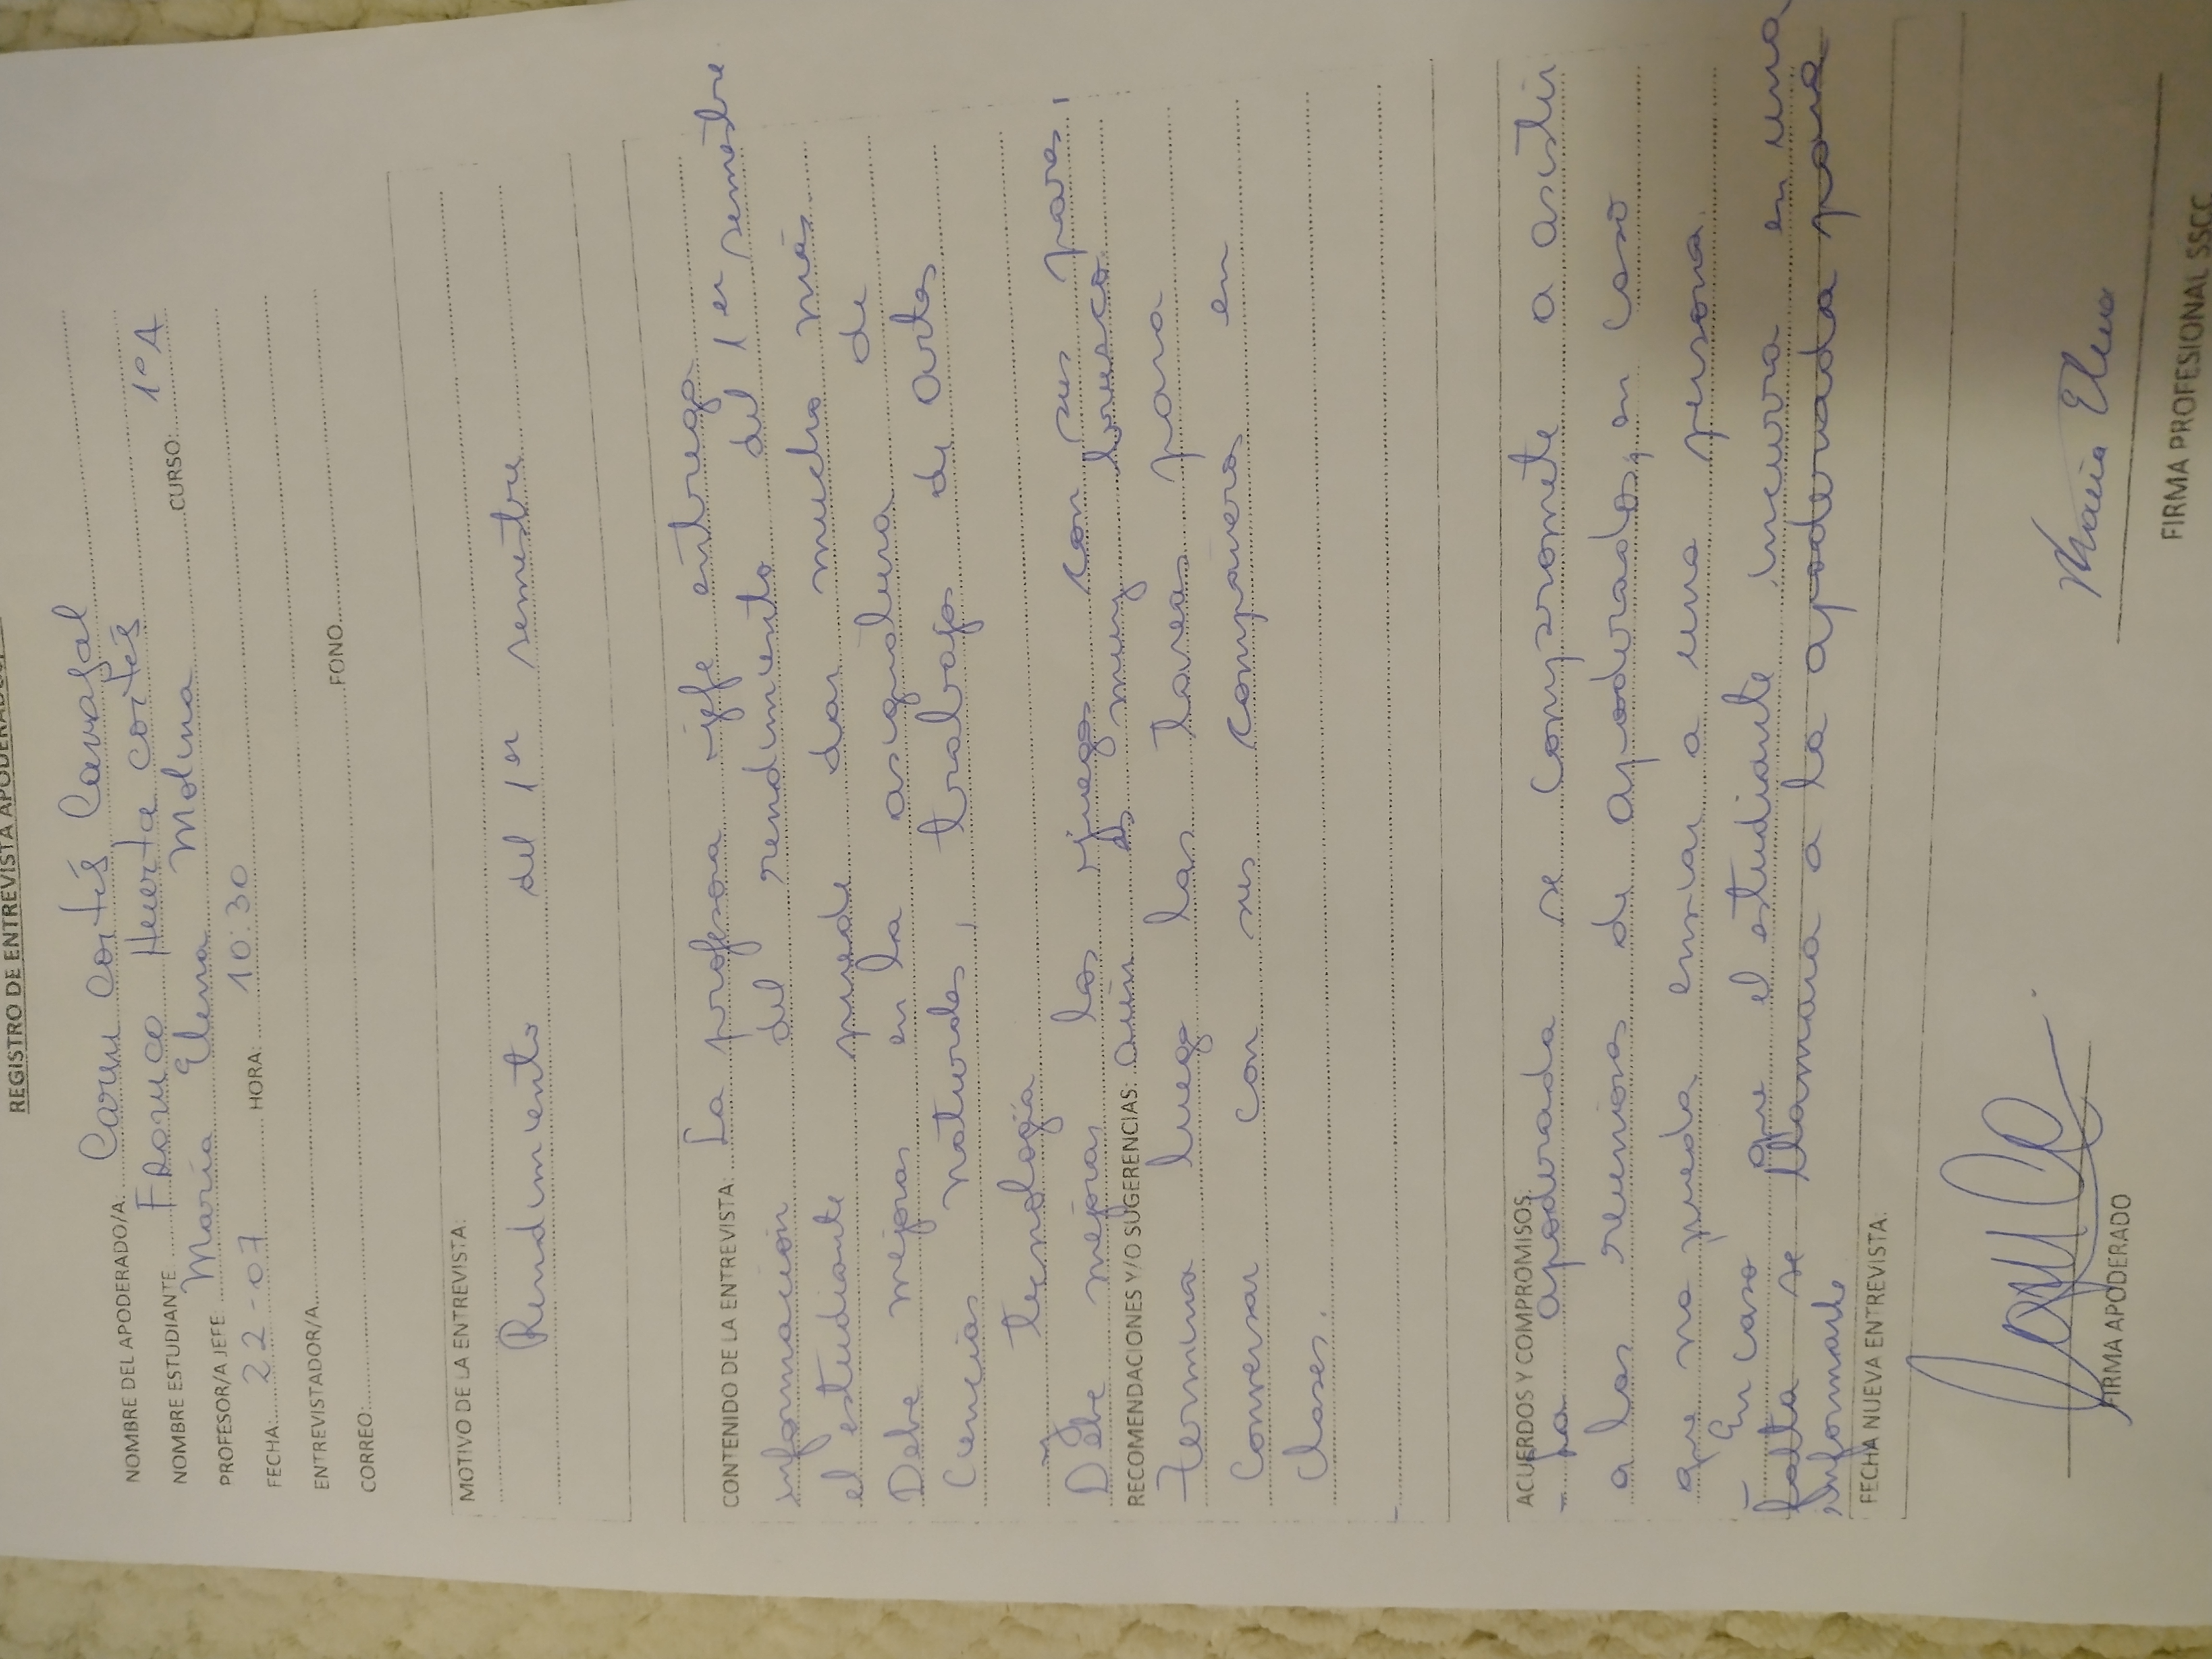 REGISTRO DE ENTREVISTA APODERADOS
NOMBRE DEL APODERADO/A: Carm Cortés Carvajal
NOMBRE ESTUDIANTE Franco Huerta Cortés
PROFESOR/A JEFE María Elena Molina CURSO: 1º A
FECHA: 22-07 HORA: 10:30
ENTREVISTADOR/A
CORREO: FONO
MOTIVO DE LA ENTREVISTA:
Rendimiento del 1er semestre
CONTENIDO DE LA ENTREVISTA: La profesora jefe entrega
información del rendimiento del 1er semestre
el estudiante puede dar mucho más
Debe mejorar en la asignatura de
Ciencias naturales, trabajos de artes
y tecnología
Debe mejorar los juegos con sus pares,
RECOMENDACIONES Y/O SUGERENCIAS: es muy brusco
Termina luego las tareas para
Conversar con sus compañeros en
clases.
ACUERDOS Y COMPROMISOS:
- La apoderada se compromete a asistir
a las reuniones de apoderados, en caso
que no pueda enviar a una persona.
- En caso que el estudiante incurra en una
falta se llamara a la apoderada para
informarle
FECHA NUEVA ENTREVISTA:
María Elena
FIRMA APODERADO FIRMA PROFESIONAL SSCC